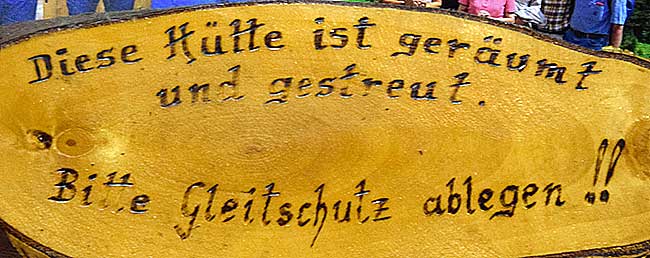 Diese Hütte ist geräumt
und gestreut.
Bitte Gleitschutz ablegen !!